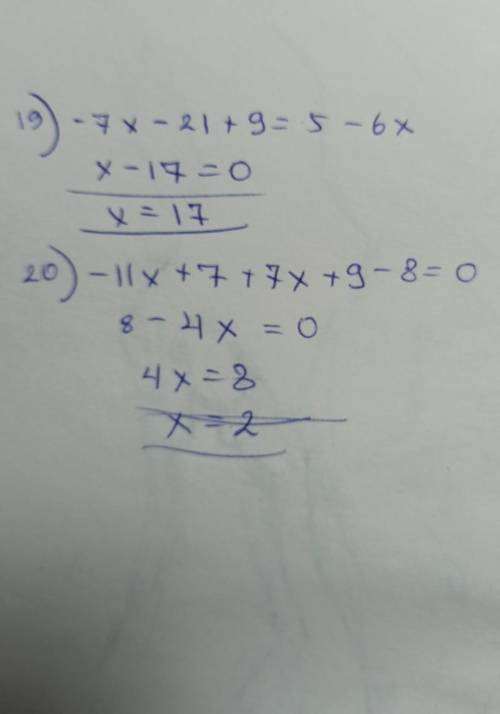 19) -7x - 21 + 9 = 5 - 6x
x - 17 = 0
x = 17
20) -11x + 7 + 7x + 9 - 8 = 0
8 - 4x = 0
4x = 8
x = 2